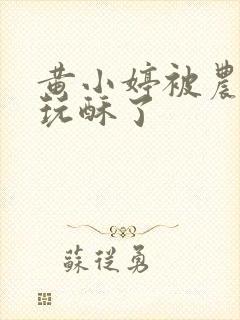 黄小婷被農
玩酥了
蘇從勇